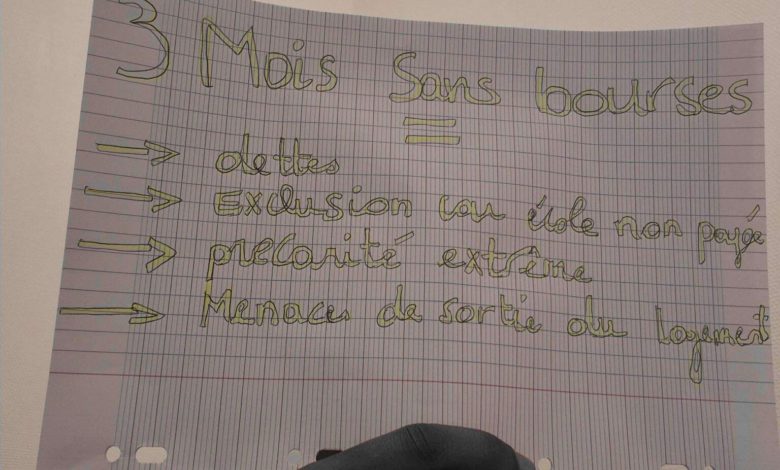 3 Mois sans bourses
=
→ dettes
→ Exclusion car école non payée
→ precarité extrême
→ Menaces de sortie du logement